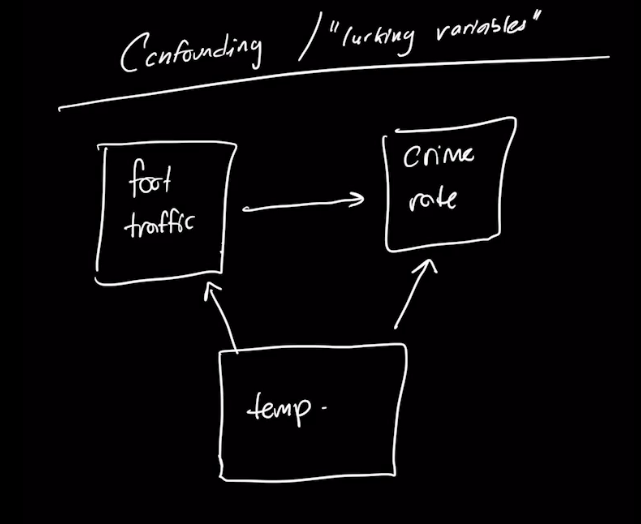 Confounding / "lurking variables"
foot
traffic
crime
rate
temp.